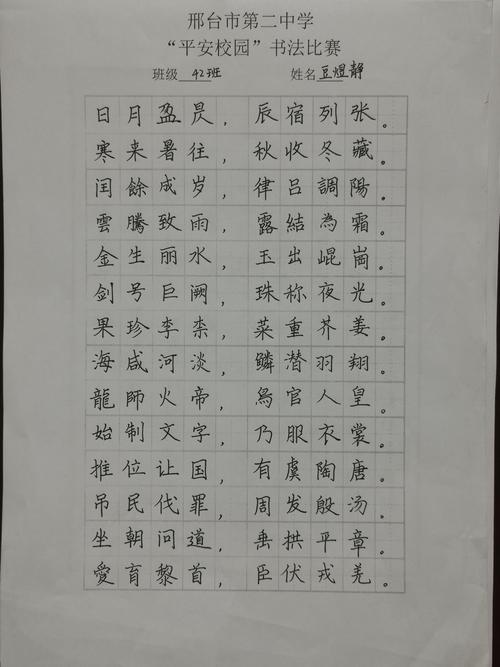 邢台市第二中学
“平安校园”书法比赛
班级 42班 姓名 豆煜静
日月盈昃，辰宿列张。
寒来暑往，秋收冬藏。
闰餘成岁，律吕調陽。
雲騰致雨，露結為霜。
金生丽水，玉出崐崗。
剑号巨阙，珠称夜光。
果珍李柰，菜重芥姜。
海咸河淡，鳞潜羽翔。
龍師火帝，鳥官人皇。
始制文字，乃服衣裳。
推位让国，有虞陶唐。
吊民伐罪，周发殷汤。
坐朝问道，垂拱平章。
愛育黎首，臣伏戎羌。